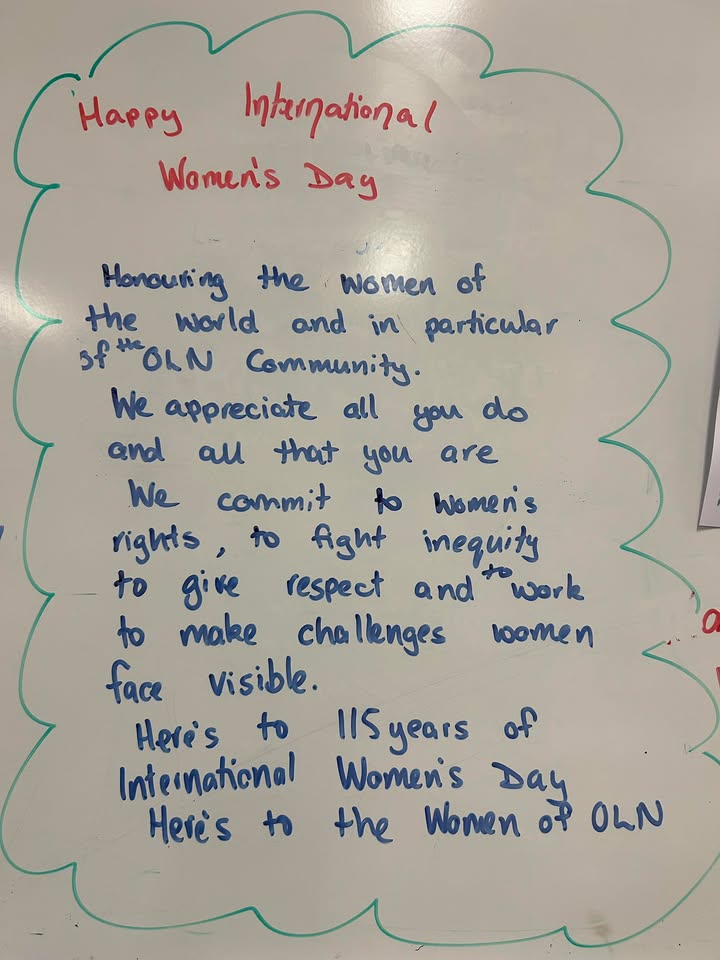 Happy International
Women's Day
Honouring the women of
the world and in particular
of the OLN Community.
We appreciate all you do
and all that you are
We commit to women's
rights, to fight inequity
to give respect and to work
to make challenges women
face visible.
Here's to 115 years of
International Women's Day
Here's to the Women of OLN